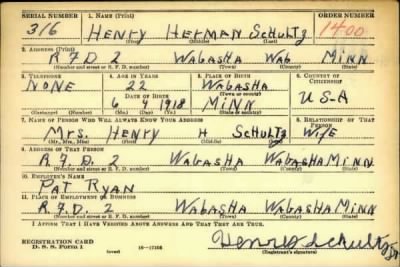 SERIAL NUMBER 1. NAME (Print) ORDER NUMBER
316 HENRY HERMAN SCHULTZ 1400
(First) (Middle) (Last)
2. ADDRESS (Print)
R.F.D. 2 WABASHA WAB MINN
(Number and street or R. F. D. number) (Town) (County) (State)
3. TELEPHONE 4. AGE IN YEARS 5. PLACE OF BIRTH 6. COUNTRY OF CITIZENSHIP
NONE 22 WABASHA
DATE OF BIRTH (Town or county)
6 4 1918 MINN U-S-A
(Exchange) (Number) (Mo.) (Day) (Yr.) (State or country)
7. NAME OF PERSON WHO WILL ALWAYS KNOW YOUR ADDRESS 8. RELATIONSHIP OF THAT PERSON
MRS. HENRY H SCHULTZ WIFE
(Mr., Mrs., Miss) (First) (Middle) (Last)
9. ADDRESS OF THAT PERSON
R.F.D. 2 WABASHA WABASHA MINN.
(Number and street or R. F. D. number) (Town) (County) (State)
10. EMPLOYER'S NAME
PAT RYAN
11. PLACE OF EMPLOYMENT OR BUSINESS
R.F.D. 2 WABASHA WABASHA MINN
(Number and street or R. F. D. number) (Town) (County) (State)
I AFFIRM THAT I HAVE VERIFIED ABOVE ANSWERS AND THAT THEY ARE TRUE.
REGISTRATION CARD
D. S. S. Form 1 (over) 16—17105 Henry Schultz Jr
(Registrant's signature)